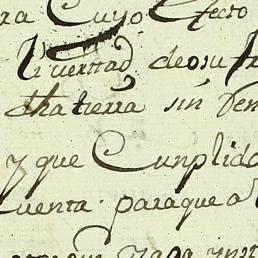 ra Cuyo Efecto
livertad deosu
dha tierra sin
y que Cunplido
Cuenta. paraque a